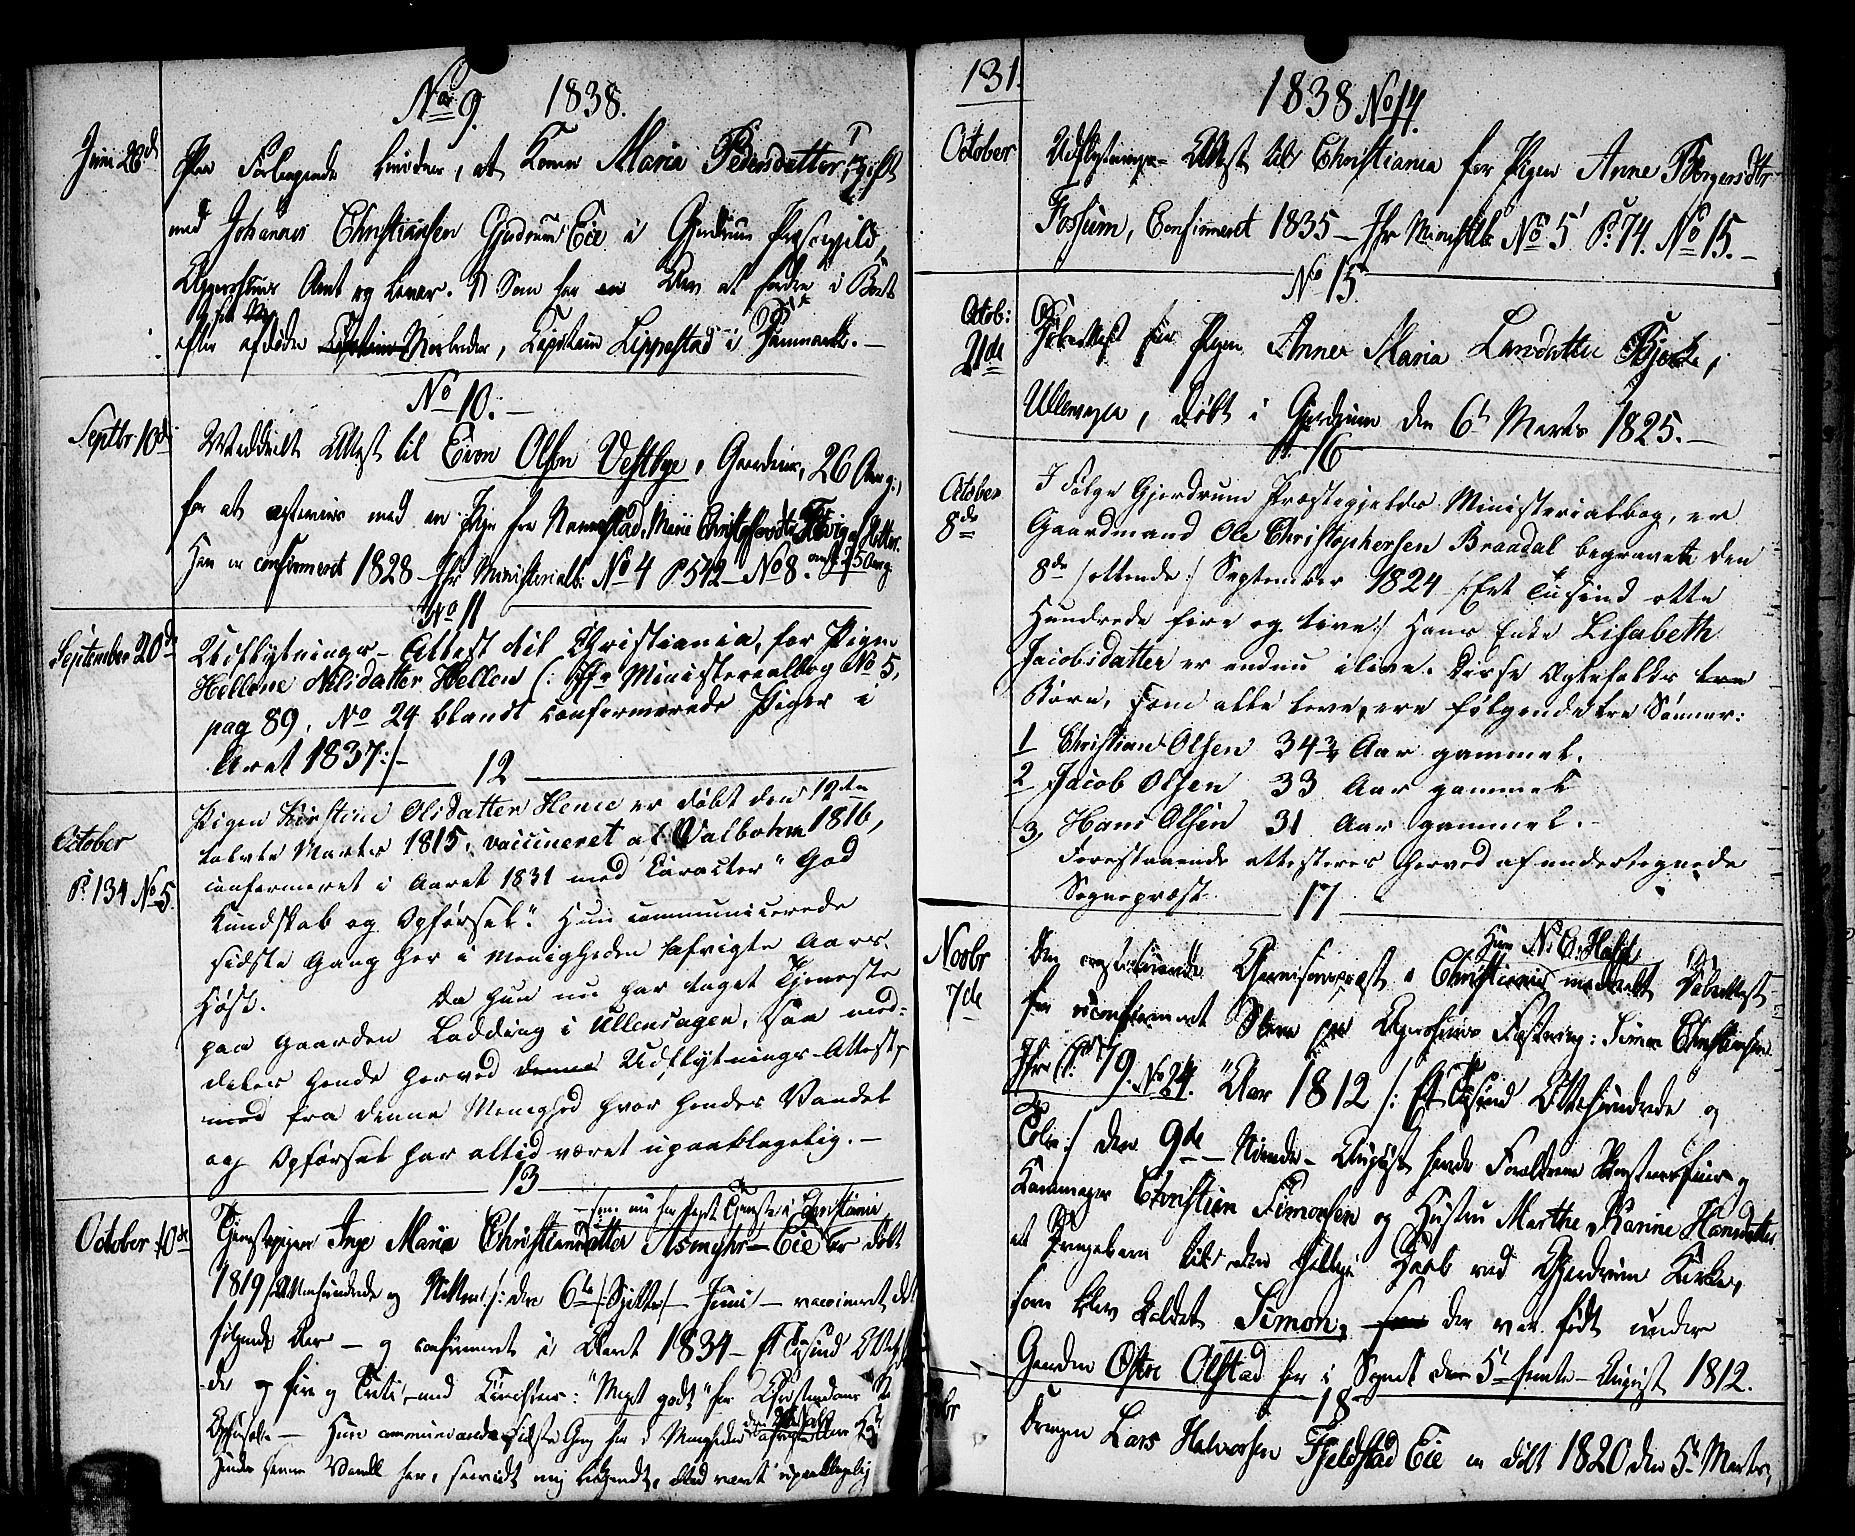 No 9. 1838.
Juni 28d
Paa Forlangende bevidnes, at Konen Maria Pedersdatter, gift
med Johannes Christiansen Gjerdrum Eie i Gjerdrum Præstegjeld,
Aggershuus Amt og lever. Som har en Arv at fordre i Boet
efter afdøde Capitain Morbroder, Capitain Lippestad i Danmark.—
No 10.—
Septbr 10de
Meddeelt Attest til Even Olsen Vestbye, Gaardmand, 26 Aar g:,
for at ægtevies med en Pige fra Nannestad, Marie Christophersdtr
Han er confirmeret 1828 — Jfr Ministerialb: No 4 P. 542 — No 8.
No 11
September 20de
Udflytnings-Attest til Christiania, for Pigen
Hellene Nilsdatter Hellen (: Jfr Ministerialbog No 5,
pag 89, No 24 blandt confirmerede Piger i
Aaret 1837:/-
12
October
P. 134 No 5.
Pigen Kirstine Olsdatter Henie er døbt den 12te
tolvte Marts 1815, vaccineret af Valbohm 1816,
confirmeret i Aaret 1831 med Caracter "God
Kundskab og Opførsel". Hun communicerede
sidste Gang her i Menigheden afvigte Aars
Høst. Da hun nu har taget Tjeneste
paa Gaarden Ladding i Ullensagen, saa med-
deles hende herved denne Udflytnings-Attest,
med fra denne Menighed hvor hendes Vandel
og Opførsel har altid været upaaklagelig.—
13
October 10de
— som nu har fæstet Tjeneste i Christiania
Tjenestepigen Inge Maria Christiansdatter Asmyhr-Eie er døbt
1819 /: Attenhundrede og Nitten :/ den 6te /: Sjette :/ Juni — vaccineret det
følgende Aar — og confirmeret i Aaret 1834 — Et Tusind Otteh
de og fire og Tredive, med Caracteer: "Meget godt" for Christendoms K
Opførsel — Hun communicerede sidste Gang her i Menigheden afvigte
Hendes Vandel her, saavidt mig bekjendt, altid været upaaklagelig
131.
1838 No 14.
October
Udflytnings-Attest til Christiania for Pigen Anne Borgersdtr
Fossum, Confirmeret 1835 — Jfr Ministlb: No 5 P. 74. No 15.—
No 15
Octob:
21de
Døbeattest for Pigen Anne Maria Larsdatter Bjerke,
Ullensager, døbt i Gjerdrum den 6te Marts 1825.—
16
October
8de
I følge Gjerdrum Præstegjelds Ministerialbog, er
Gaardmand Ole Christophersen Braadal begravet den
8de /: ottende :/ September 1824 /: Eet Tusind otte
Hundrede fire og tive :/ Hans Enke Lisabeth
Jacobsdatter er endnu ilive. Disse Ægtefolks tre
Børn, som alle leve, ere følgende tre Sønner:
1 Christian Olsen 34¾ Aar gammel.
2 Jacob Olsen 33 Aar gammel
3, Hans Olsen 31 Aar gammel.—
Forestaaende attesteres herved af undertegnede
Sognepræst.
17
Novbr
7de
Herr N. C. Hald
Den constituerede Garnisonspræst i Christiania meddeelt Døbeattest
for uconfirmeret Slave paa Agershuus Fæstning: Simon Christiansen
Jfr P. 79. No 24. "Aar 1812 /: Et Tusind Ottehundrede og
Tolv :/ den 9de — Niende — August havde Forældrene
Christian Simonsen og Hustru Marthe Karine Hansdatter
et Drengebarn til den hellige Daab ved Gjerdrum Kirke,
som blev kaldet Simon, som der var født under
Gaarden Østre Olstad her i Sognet den 5te femte — August 1812.
18
Drengen Lars Halvorsen Fjeldstad Eie er døbt 1820 den 5te Marts,